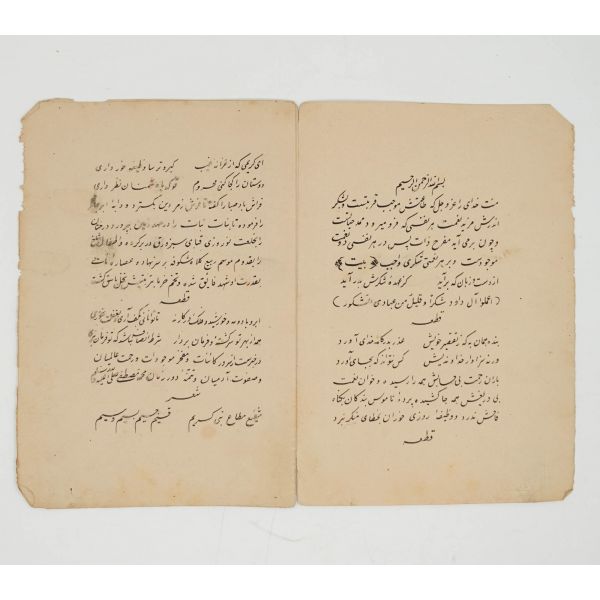 بسم الله الرحمن الرحیم
منت خدای را عزوجل که طاعتش موجب قربتست و بشکر
اندرش مزید نعمت هر نفسی که فرو میرود ممد حیاتست
و چون برمی آید مفرح ذات پس در هر نفسی دو نعمت
موجودست و بر هر نعمتی شکری واجب بیت
از دست و زبان که برآید کز عهده شکرش بدر آید
( اعملوا آل داود شکرا و قلیل من عبادی الشکور )
قطعه
بنده همان به که ز تقصیر خویش عذر بدرگاه خدای آورد
ورنه سزاوار خداوندیش کس نتواند که بجای آورد
باران رحمت بی حسابش همه را رسیده و خوان نعمت
بی دریغش همه جا کشیده پرده ناموس بندگان بگناه
فاحش ندرد و وظیفه روزی خوران بخطای منکر نبرد
قطعه
ای کریمی که از خزانه غیب گبر و ترسا وظیفه خور داری
دوستان را کجا کنی محروم تو که با دشمنان نظر داری
فراش باد صبا را گفته تا فرش زمردین بگسترد و دایه ابر
را فرموده تا بنات نبات را در مهد زمین بپرورد درختان
را بخلعت نوروزی قبای سبز ورق در بر کرده و اطفال شاخ
را بقدوم موسم ربیع کلاه شکوفه بر سر نهاده و عصاره
بقدرت او شهد فایق شده و تخم خرما بتربیتش نخل باسق گشته
قطعه
ابر و باد و مه و خورشید و فلک در کارند تا تو نانی بکف آری و بغفلت نخوری
همه از بهر تو سرگشته و فرمان بردار شرط انصاف نباشد که تو فرمان نبری
در خبرست از سرور کاینات و مفخر موجودات و رحمت عالمیان
و صفوت آدمیان و تتمه دور زمان محمد مصطفی صلی الله علیه
شعر
شفیع مطاع نبی کریم قسیم جسیم بسیم وسیم